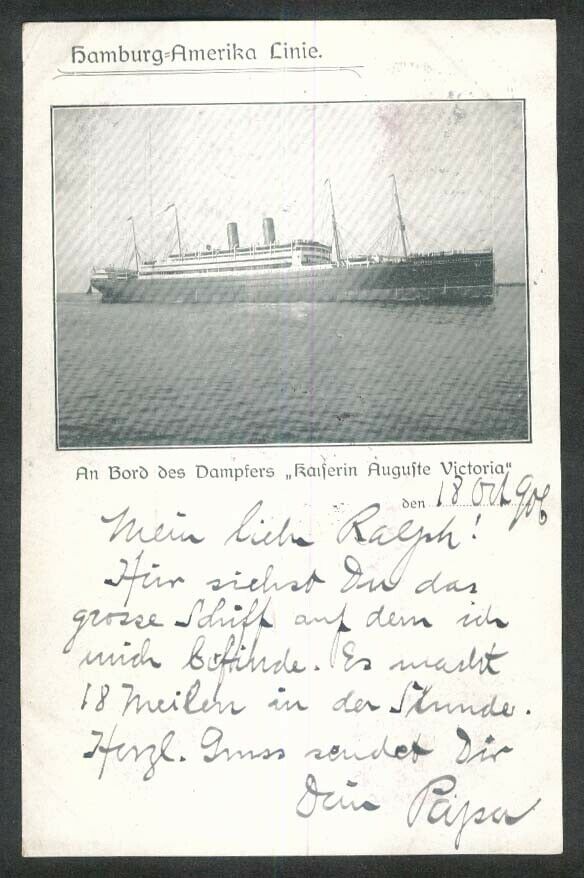 Hamburg-Amerika Linie.
An Bord des Dampfers „Kaiserin Auguste Victoria“
den 18 Oct 906
Mein lieber Ralph!
Hier siehst Du das
grosse Schiff auf dem ich
mich befinde. Es macht
18 Meilen in der Stunde.
Herzl. Gruss sendet Dir
Dein Papa